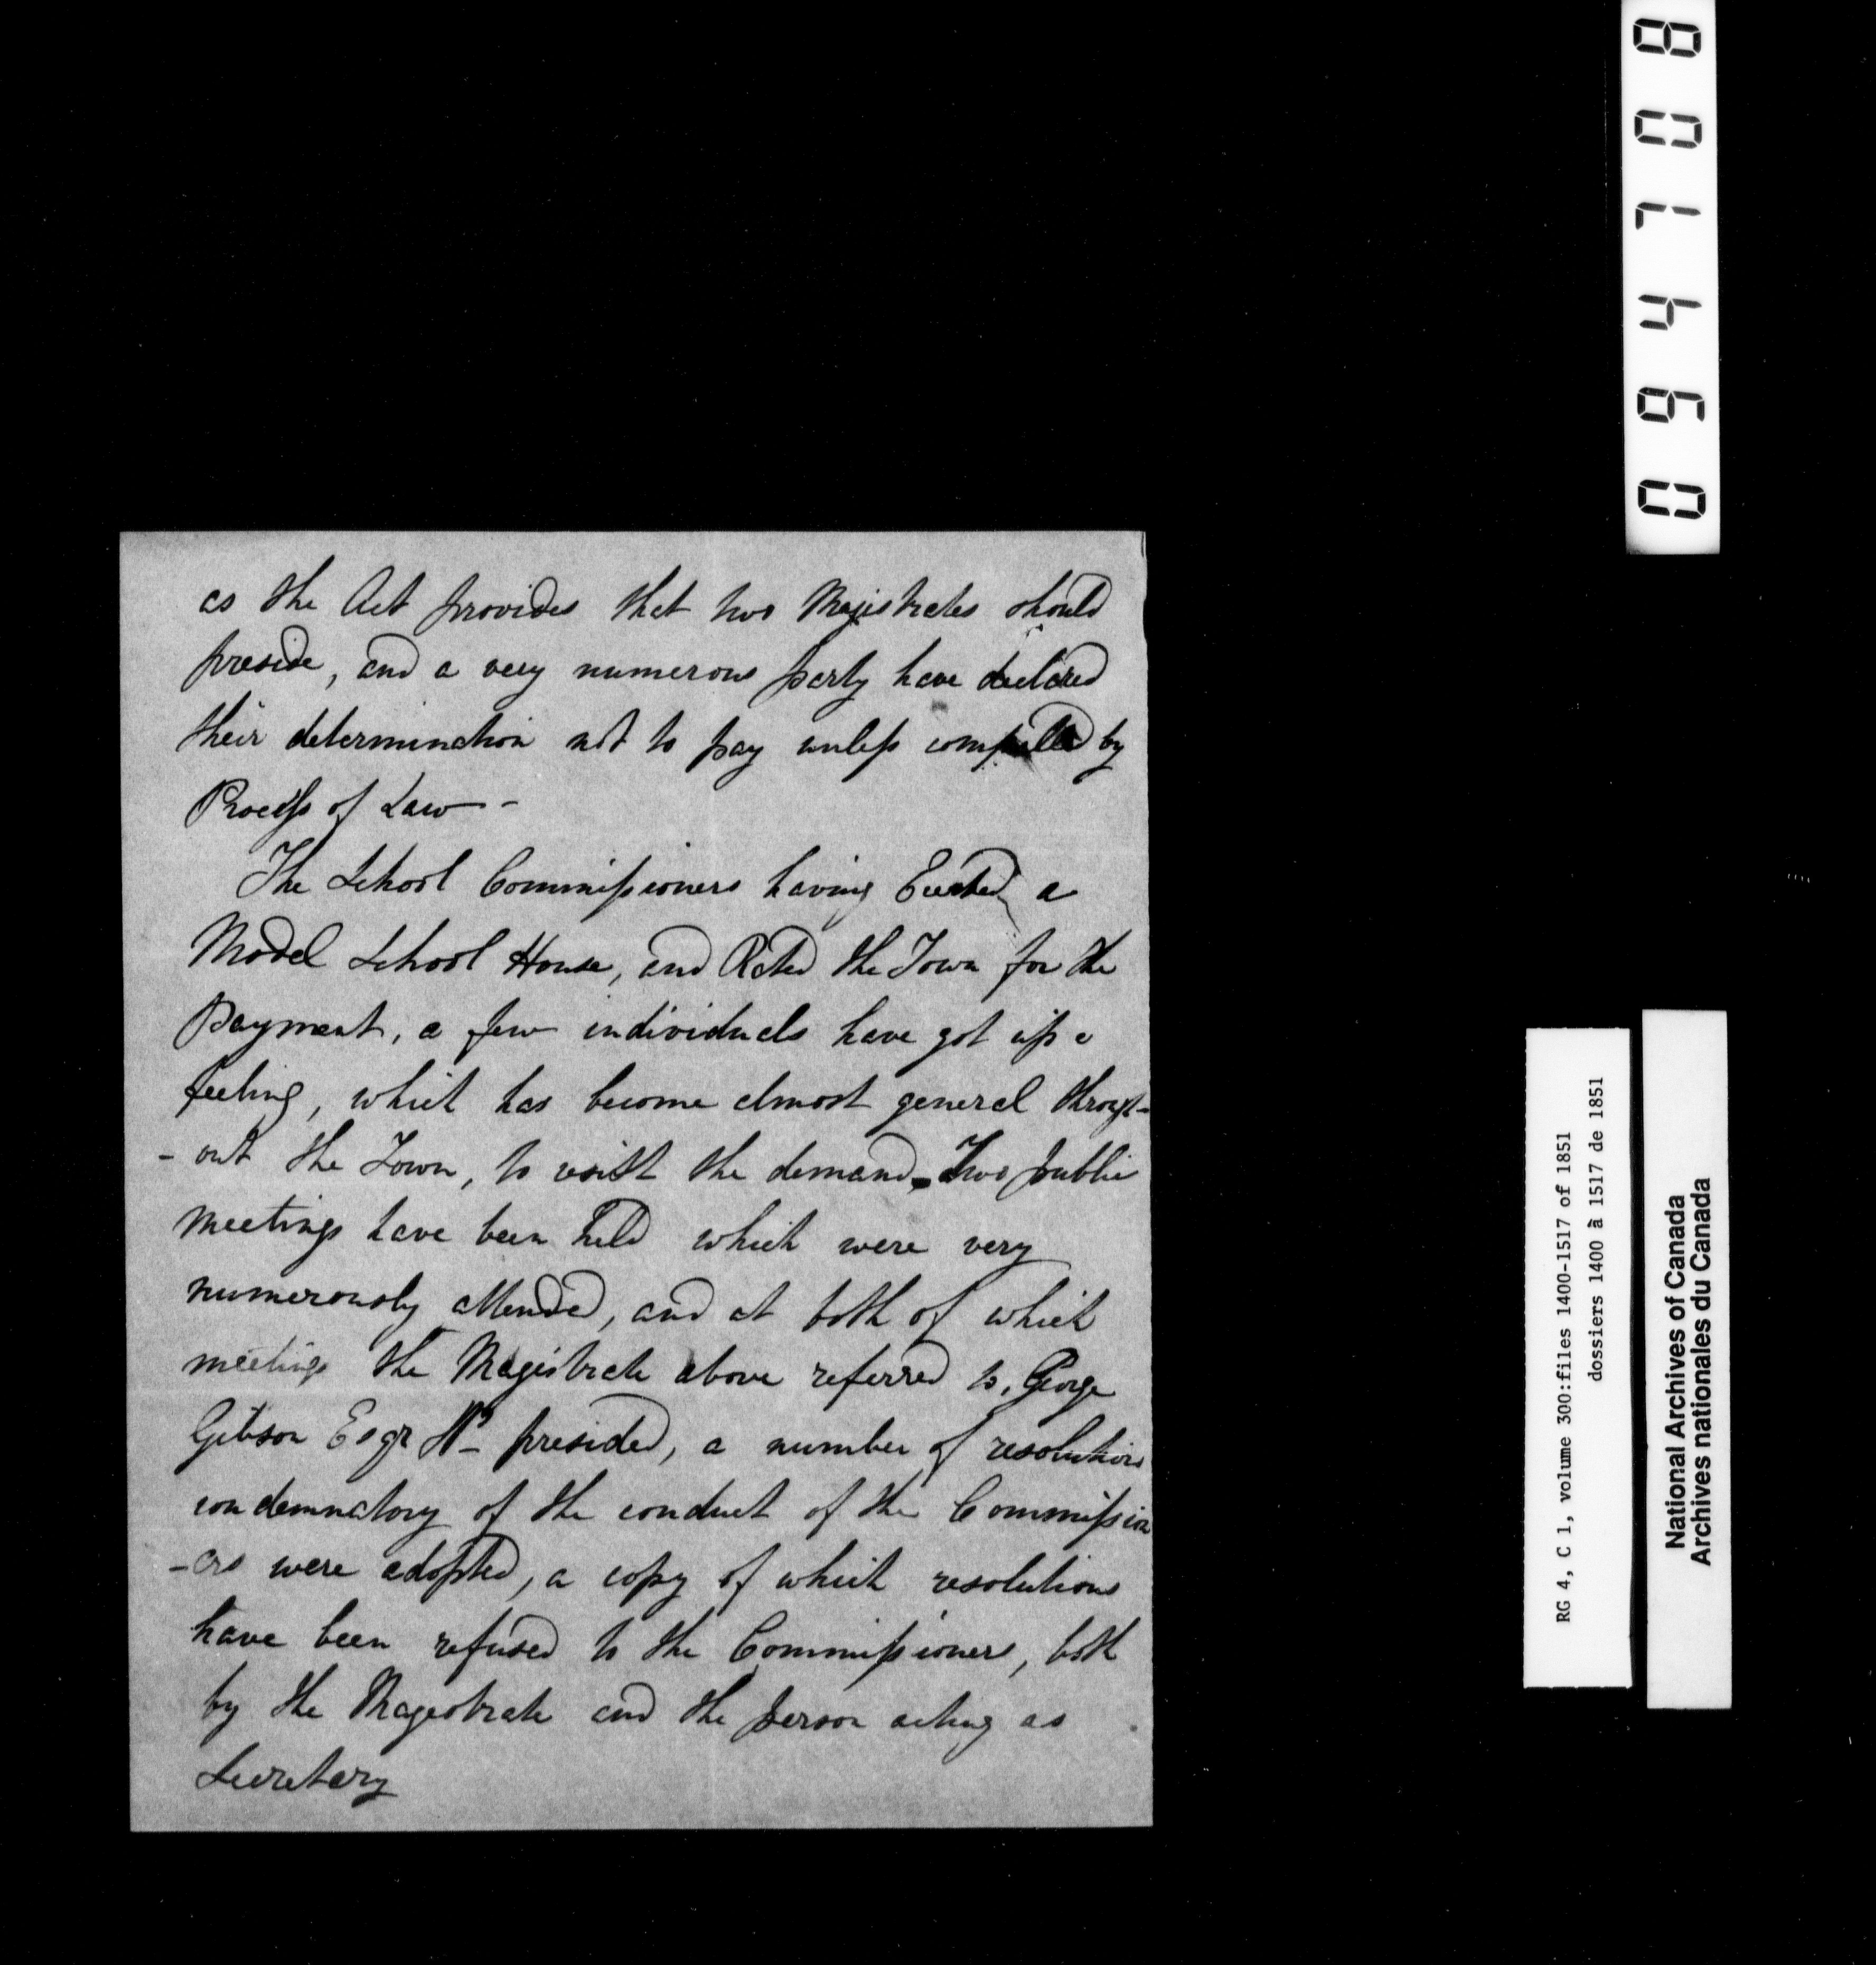 as the Act provides that two Magistrates should
preside, and a very numerous party have declared
their determination not to pay unless compelled by
Process of Law -
The School Commissioners having Erected a
Model School House, and Rated the Town for the
Payment, a few individuals have got up a
feeling, which has become almost general through-
- out the Town, to resist the demand. Two public
meetings have been held which were very
numerously attended, and at both of which
meetings the Magistrate above referred to, George
Gibson Esqr presided, a number of resolutions
condemnatory of the conduct of the Commission
-ers were adopted, a copy of which resolutions
have been refused to the Commissioners, both
by the Magistrate and the person acting as
Secretary
094708
RG 4, C 1, volume 300:files 1400-1517 of 1851
dossiers 1400 à 1517 de 1851
National Archives of Canada
Archives nationales du Canada